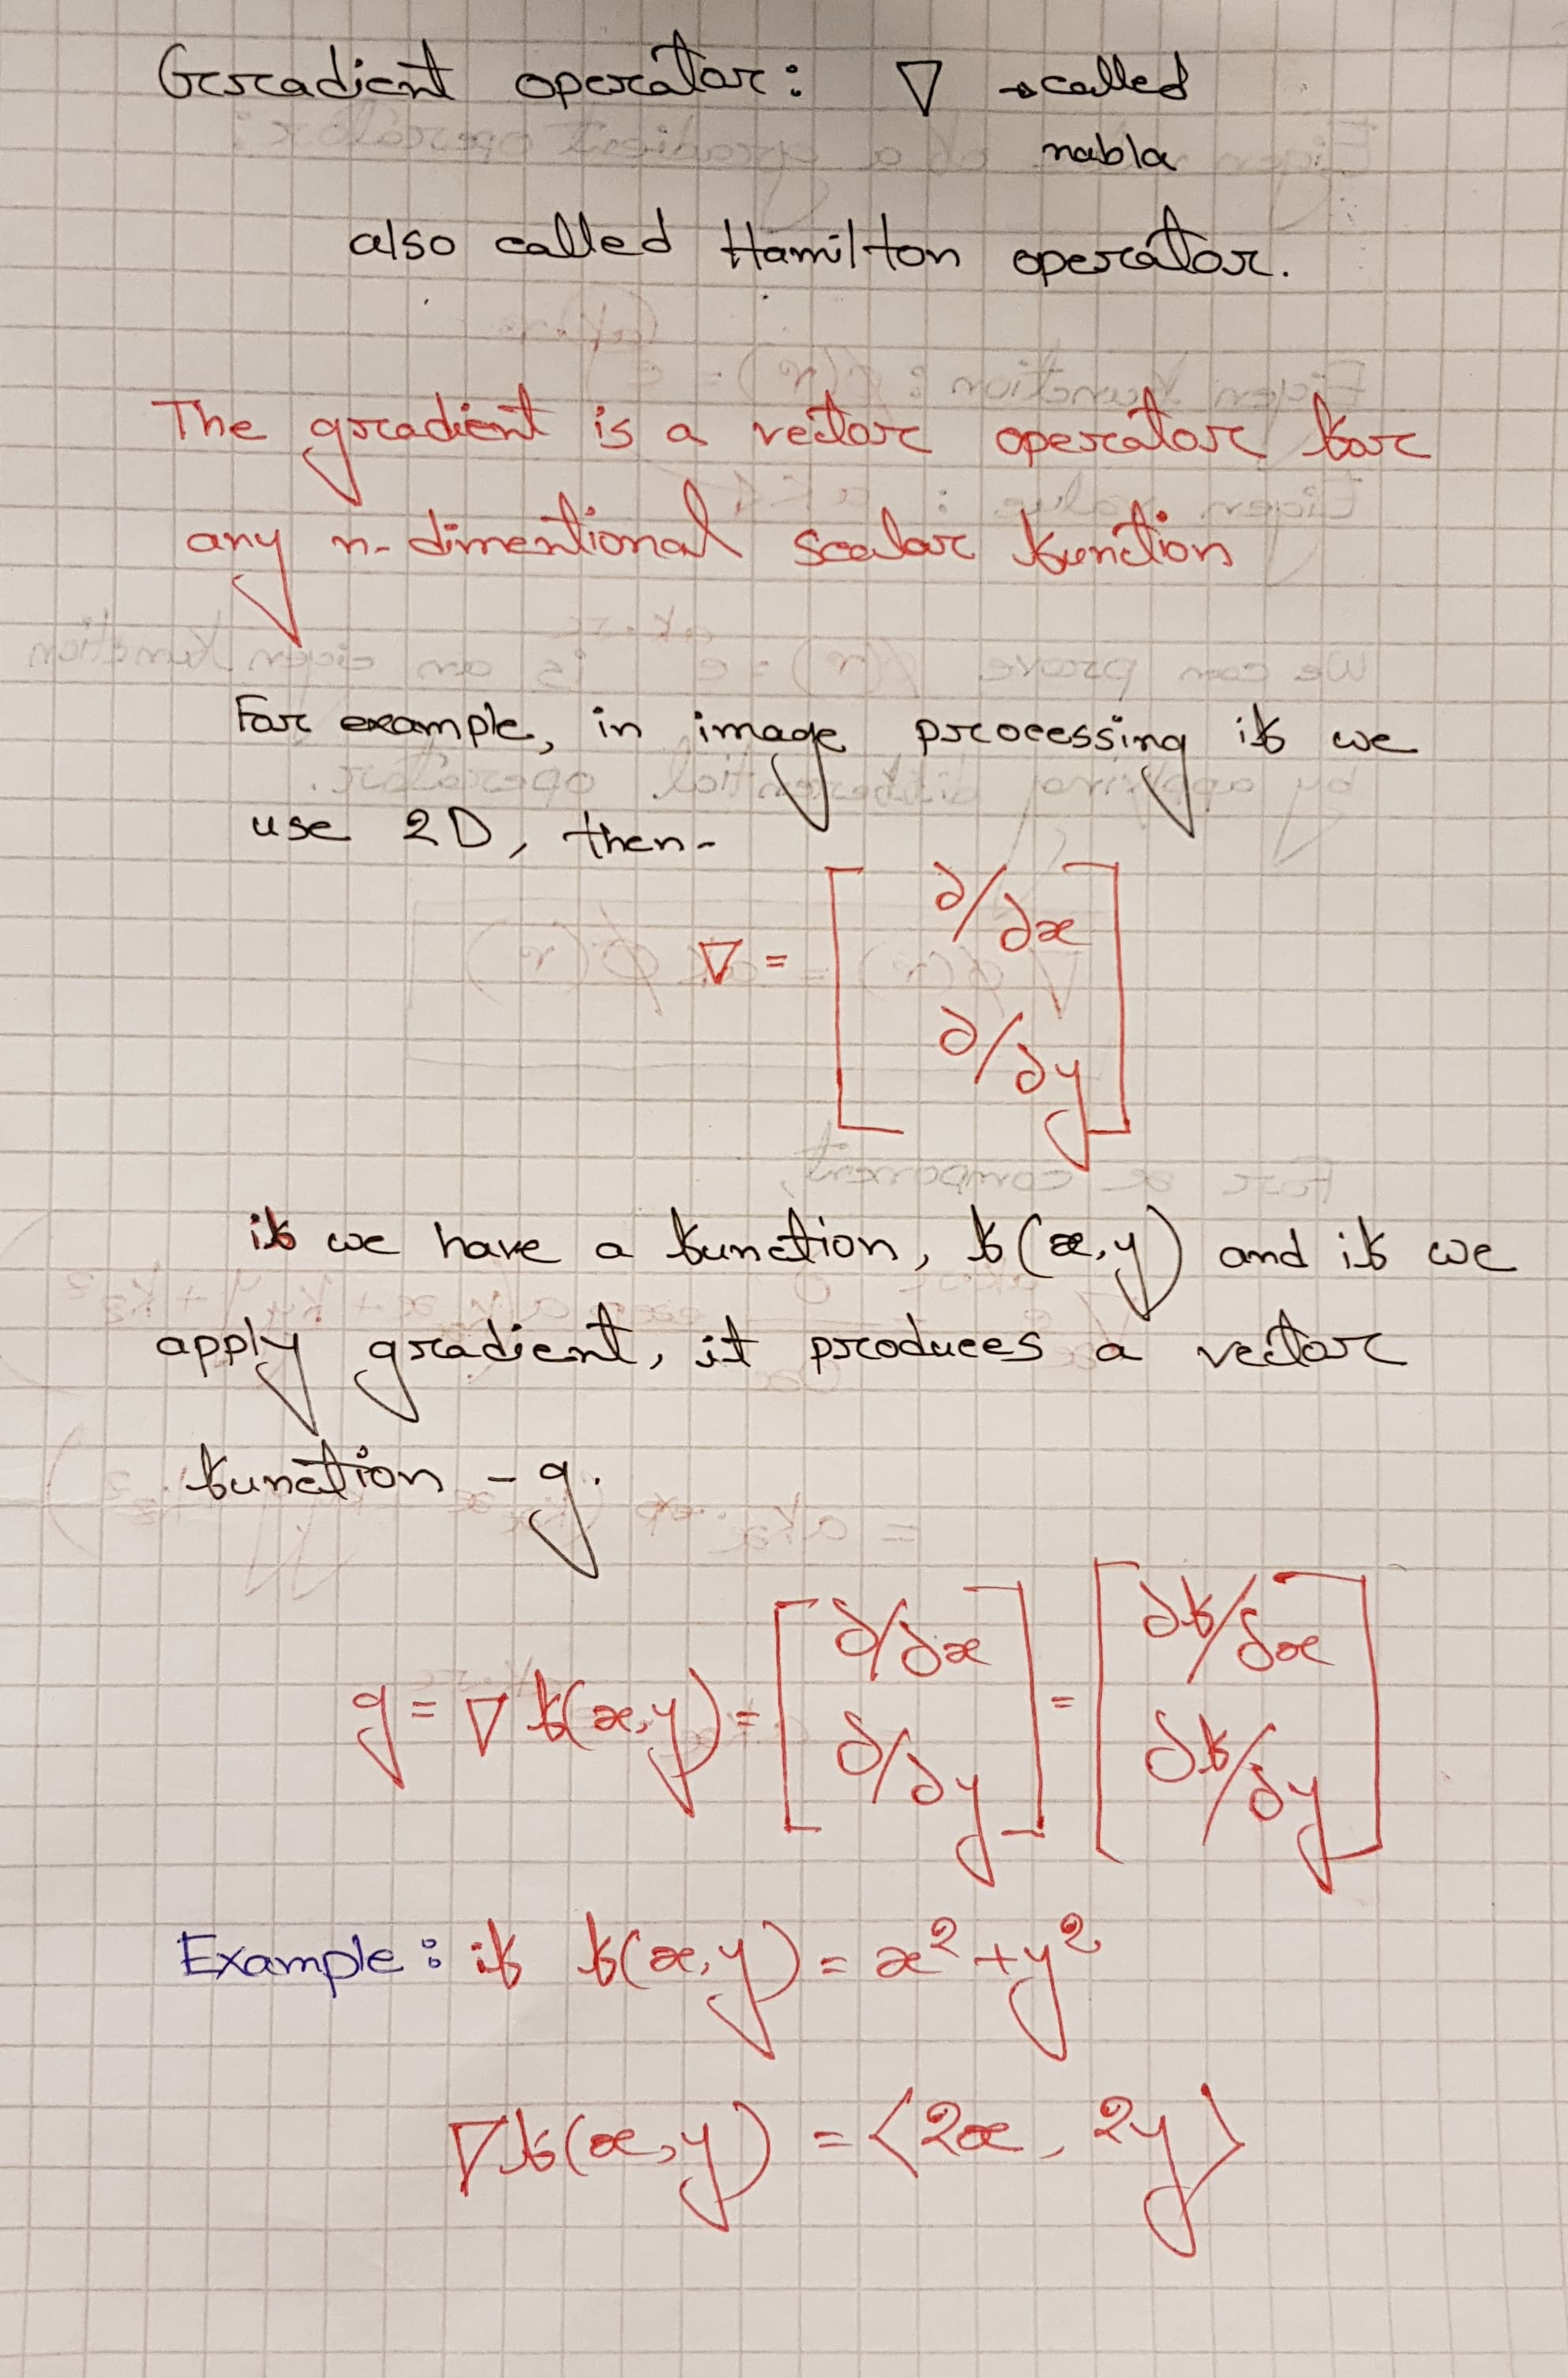 Gradient operator: ∇ → called
nabla
also called Hamilton operator.
The gradient is a vector operator for
any n-dimentional scalar function
For example, in image processing if we
use 2D, then-
∇ = [ ∂/∂x
∂/∂y ]
if we have a function, f(x,y) and if we
apply gradient, it produces a vector
function - g.
g = ∇ f(x,y) = [ ∂/∂x ∂/∂y ] = [ ∂f/∂x ∂f/∂y ]
Example: if f(x,y) = x² + y²
∇f(x,y) = ⟨2x, 2y⟩